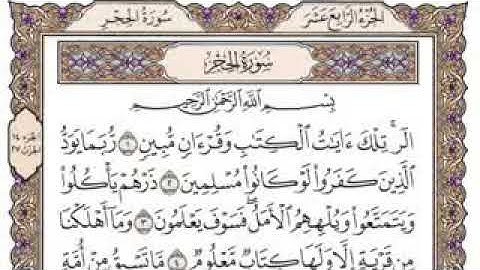 الجزء الرابع عشر
سورة الحجر
سورة الحجر
بسم الله الرحمن الرحيم
الٓرۚ تِلْكَ ءَايَٰتُ ٱلْكِتَٰبِ وَقُرْءَانٍ مُّبِينٍ ۝١ رُّبَمَا يَوَدُّ
ٱلَّذِينَ كَفَرُوا۟ لَوْ كَانُوا۟ مُسْلِمِينَ ۝٢ ذَرْهُمْ يَأْكُلُوا۟
وَيَتَمَتَّعُوا۟ وَيُلْهِهِمُ ٱلْأَمَلُۖ فَسَوْفَ يَعْلَمُونَ ۝٣ وَمَآ أَهْلَكْنَا
مِن قَرْيَةٍ إِلَّا وَلَهَا كِتَابٌ مَّعْلُومٌ ۝٤ مَّا تَسْبِقُ مِنْ أُمَّةٍ